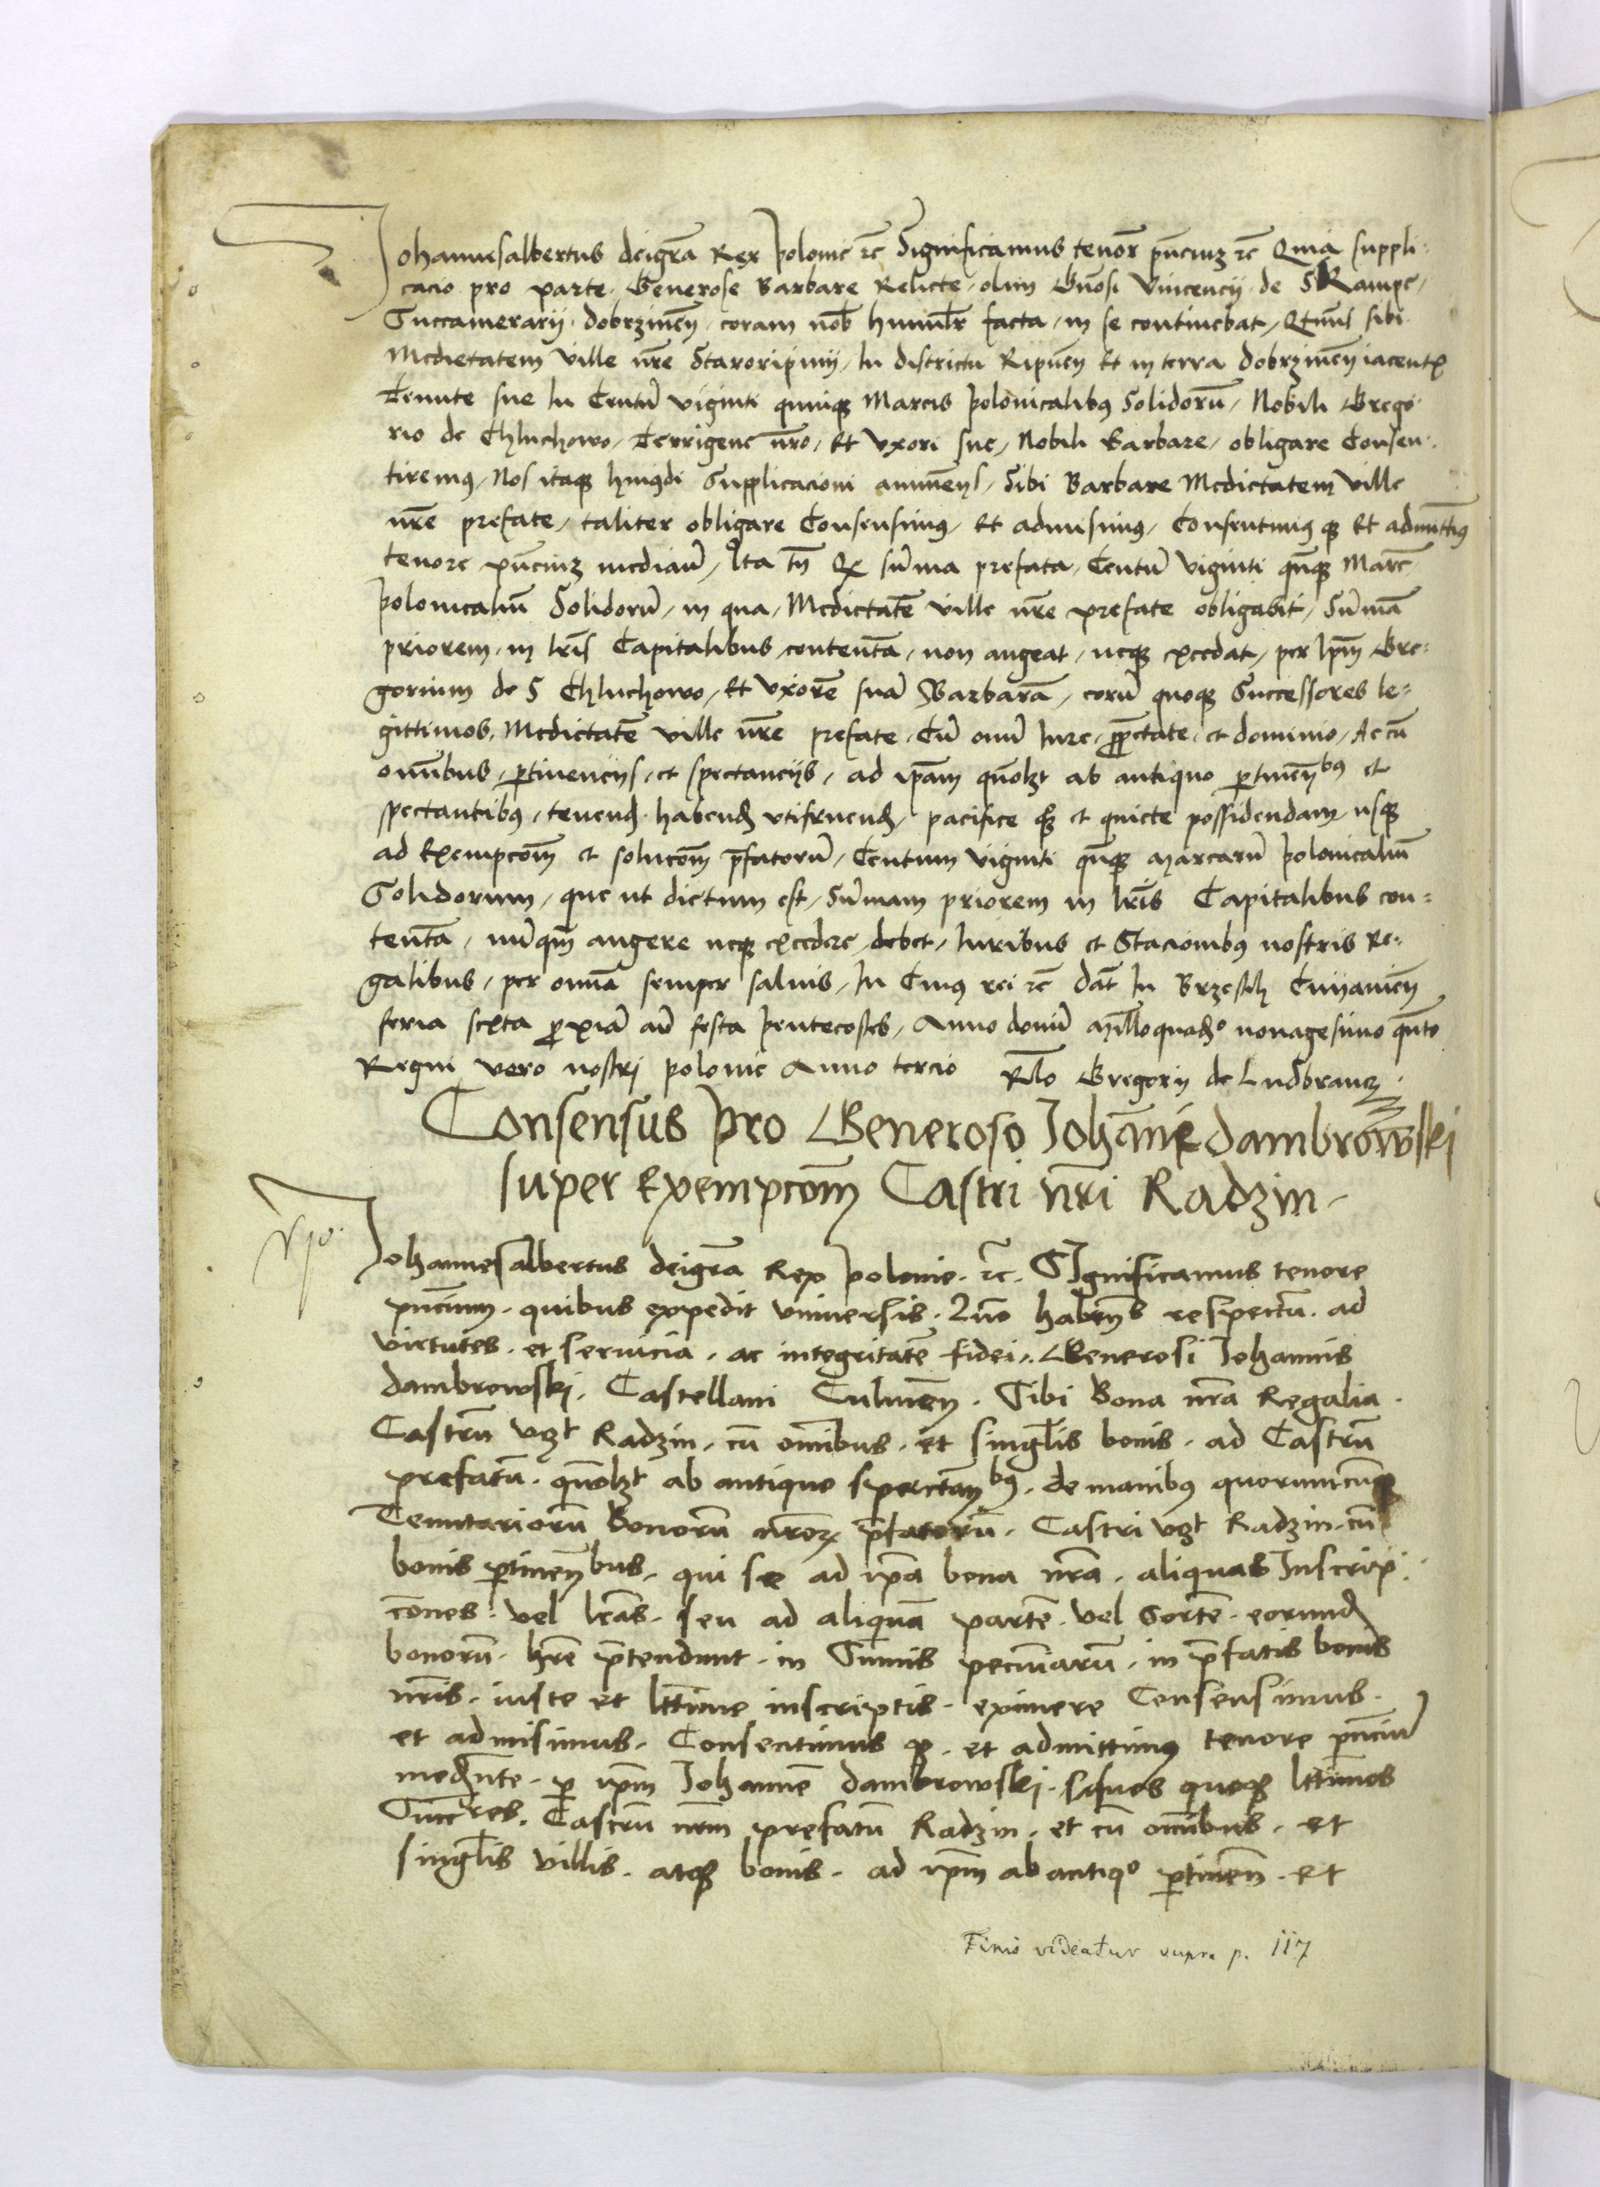 Johannesalbertus deigra Rex polonie etc Significamus tenor pntiuz etc Quia suppli-
cacio pro parte Generose Barbare Relicte olim Gnosi Vincencij de SKampe
Succamerarij dobrzinen coram nob humilr facta in se continebat Qtnus sibi
Medietatem ville nre Staroripini In districtu Ripinen Et in terra dobrzinen iacentem
Tenute sue In Centum viginti quinque Marcis polonicalibus Solidorum Nobili Grego-
rio de Chluchowo Terrigene nro Et Vxori sue Nobili Barbare obligare Consen-
tiremus Nos itaque huiusdi Supplicacioni annuens Sibi Barbare Medietatem Ville
nre prefate taliter obligare Consensimus Et admisimus Consentimusque Et admittimus
tenore pntiuz mediante Ita tn Qd suma prefata Centum Viginti quinque Marc
polonicalium Solidorum in qua Medietatem ville nre prefate obligabit Sumam
priorem in lris Capitalibus contentam non augeat neque excedat per Ipm Gre-
gorium de S Chluchowo Et Vxorem suam Barbaram eorum quoque Successores le-
gittimos Medietatem ville nre prefate Cum omni Iure proprietate et dominio Ac cum
omnibus pertinencijs et spectancijs ad ipam quomodolibet ab antiquo pertinentibus et
spectantibus tenend habend vtifruend pacifice que et quiete possidendam usque
ad Exempcom et solucom prefatorum Centum viginti quinque Marcarum polonicalium
Solidorum que ut dictum est Sumam priorem in lris Capitalibus con-
tentam nunquam augere neque excedere debet Iuribus et Stacionibus nostris Re-
galibus per omnia semper saluis In Cuius rei etc dat In Brzesth Cuijauien
feria sexta proxima ante festa pentecostes Anno domini Millo quadro nonagesimo quinto
Regni vero nostri polonie Anno tercio Rlo Gregorij de Ludbrancz
Consensus pro Generoso Johanne dambrowski
super Exempcom Castri nri Radzin
Johannesalbertus deigra Rex polonie etc. SIgnificamus tenore
pntium quibus expedit vniuersis Quo habentes respectum ad
virtutes et seruicia ac integritatem fidei Generosi Johannis
dambrowski Castellani Culmen Sibi Bona nra Regalia
Castrum vzt Radzin cum omnibus et singlis bonis ad Castrum
prefatum quomodolibet ab antiquo spectantibus de manibus quorumcumque
Tenutariorum Bonorum nrorum prefatorum Castri vzt Radzin cum
bonis pertinentibus qui se ad ipa bona nra aliquas Inscrip-
cones vel lras seu ad aliquam partem vel Sortem eorumd
bonorum hre pretendunt in Sumis pecuniarum in prefatis bonis
nris iuste et lttime inscriptis eximere Consensimus
et admisimus Consentimus que et admittimus tenore pntium
mediante per ipm Johannem dambrowski suos quoque lttimos
Succres Castrum nrm prefatum Radzin et cum omnibus et
singlis villis atque bonis ad ipm ab antiquo pertinen et
Finis videatur supra p. 117